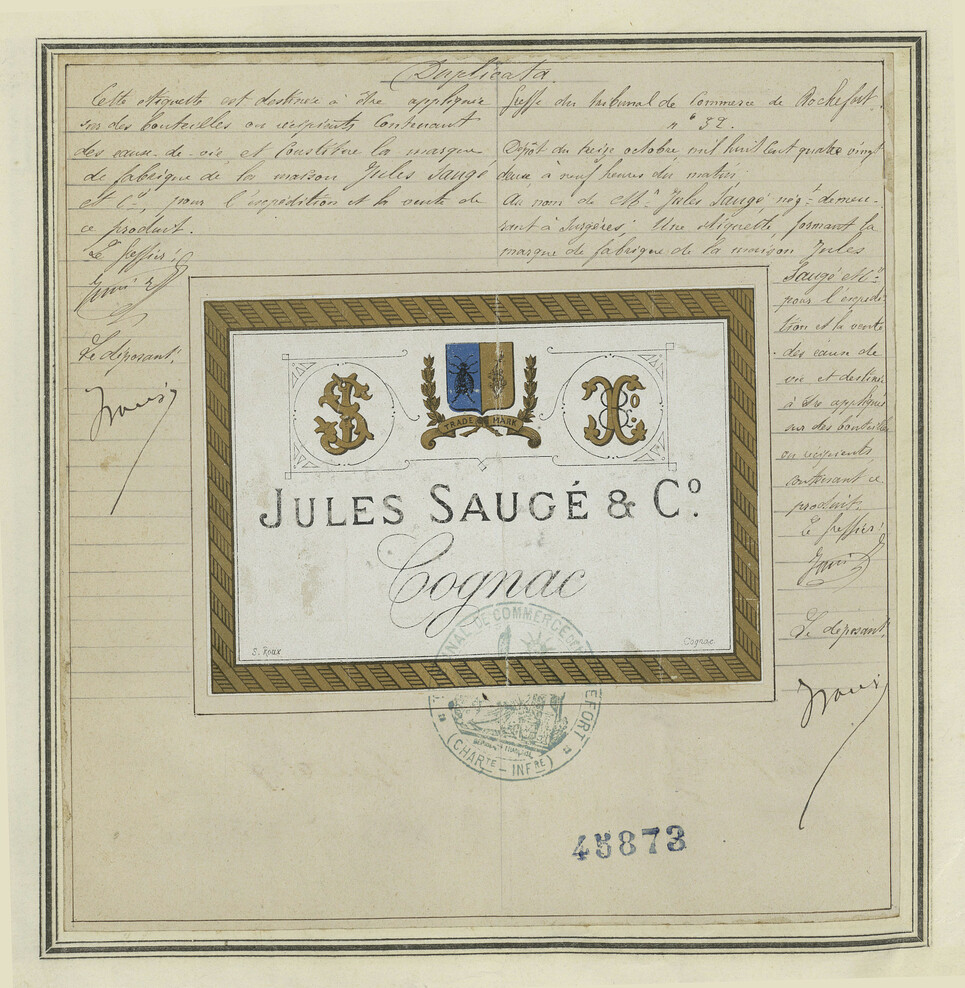 Duplicata
Cette étiquette est destinée à être appliquée
sur des bouteilles ou récipients contenant
des eaux-de-vie, et constitue la marque
de fabrique de la maison Jules Saugé
et Cie, pour l'expédition et la vente de
ce produit.
Le Greffier:
Le déposant:
Greffe du tribunal de Commerce de Rochefort.
n° 32.
Dépôt du treize octobre mil huit cent quatre vingt
deux à neuf heures du matin.
Au nom de Mr Jules Saugé, négt demeu-
rant à Surgères, Une étiquette, formant la
marque de fabrique de la maison Jules
Saugé et Cie
pour l'expédi-
tion et la vente
des eaux de
vie et destinée
à être appliquée
sur des bouteilles
ou récipients
contenant ce
produit.
Le Greffier:
Le déposant:
JS
TRADE MARK
& Co
JULES SAUGÉ & Co.
Cognac
S. Roux
Cognac
TRIBUNAL DE COMMERCE DE ROCHEFORT
(CHARTE - INFRE)
45873